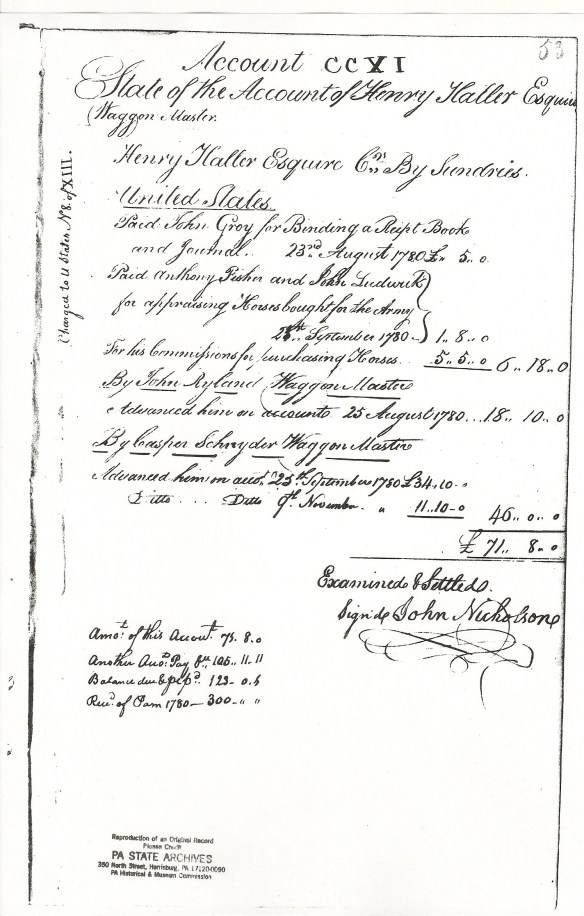 53
Account CCXI
State of the Account of Henry Haller Esquire
Waggon Master.
Charged to U States No 8. of XIII.
Henry Haller Esquire Cr. By Sundries.
United States
Paid John Groy for Binding a Reipt Book
and Journal. 23rd August 1780 £ „ 5 .. 0
Paid Anthony Fisher and John Ludwick
for appraising Horses bought for the Army
25th September 1780 - 1 .. 8 .. 0
For his Commissions for purchasing Horses. 5 .. 5 .. 0 6 .. 18 .. 0
By John Ryland Waggon Master
Advanced him on accounts 25 August 1780 ... 18 .. 10 .. 0
By Casper Schnyder Waggon Master
Advanced him on acct. 25th September 1780 £34 .. 10 - 0
Ditto ... Ditto 9th November „ 11 .. 10 - 0 46 .. 0 .. 0
£ 71 .. 8 .. 0
Examined & Settled.
Signed John Nicholson
Amot. of this Accout. 71. 8. 0
Another Acct. Pay &c 105 .. 11 .. 11
Balance due 123 - 0.
Recd. of Pam 1780 — 300 - „ „
Reproduction of an Original Record
Please Credit
PA STATE ARCHIVES
350 North Street, Harrisburg, PA 17120-0090
PA Historical & Museum Commission